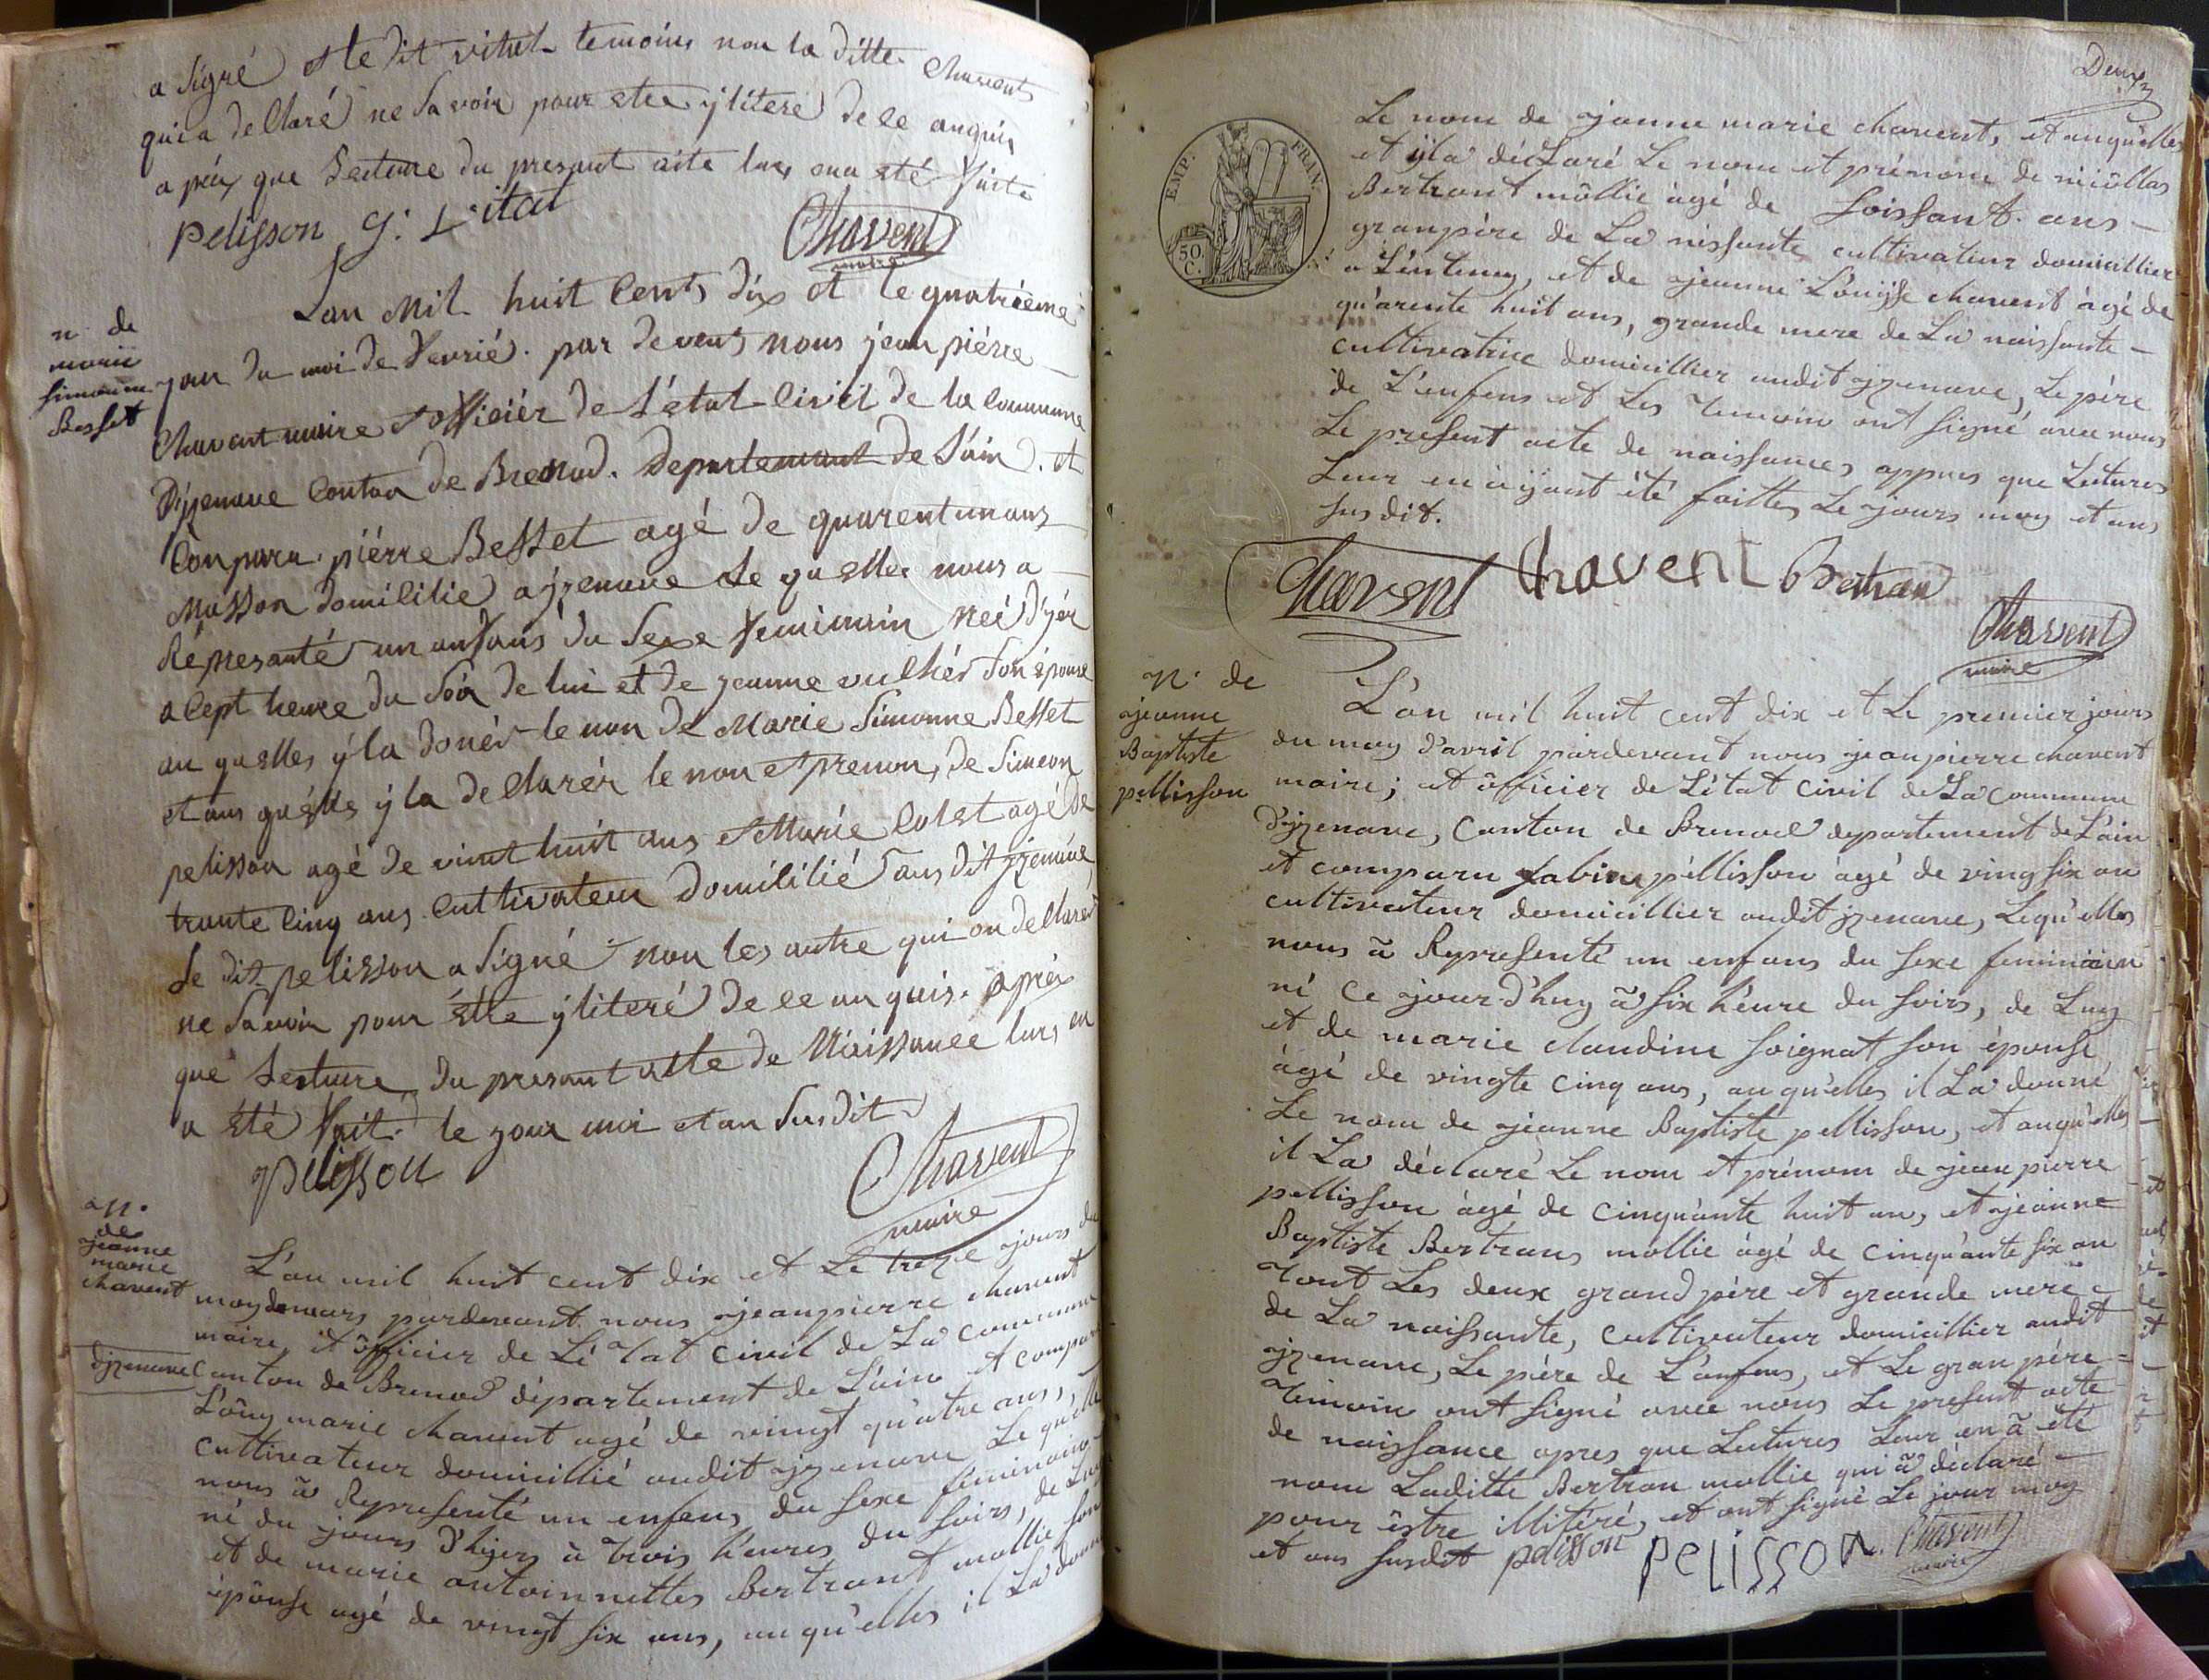 a signé et le dit vital temoins non la ditte Chavent
qui a declaré ne savoir pour etre yliteré de ce anquis
apréx que lecture du presant acte lur en a eté faite
pelisson J: L: itat
Chavent
maire
n. de
marie
simonne
Besset
Lan Mil huit Cents dix et le quatriéme
jour du moi de fevrié. par devent nous jean piérre
Chavent maire et officiér de l'état Civil de la Commune
d'izenave Conton de Brenod. Departemant de l'ain. et
Conparu piérre Besset agé de quarentunans
Masson domicilié a jzenave le quelles nous a
Répresanté un enfans du sexe feminnin neé d'yér
a cept heure du soir de lui et de jeanne vulliér son épouse
au quelles y la donér le non de Marie Simonne Besset
et aus quélle y la declarér le non et prenon, de Simeon
pelisson agé de vint huit ans et Marie Colet agé de
trante cinq ans cultivateur domicilié aus dit jzenave
le dit pelisson a signé non les autre qui on declarér
ne savoir pour étre yliteré de ce anquis. apréx
que lecture du presant acte de Naissance lurs en
a été fait le jour moi et an susdit
pelisson
Chavent
maire
n.
de
jeanne
marie
chavent
L'an mil huit cent dix et le treze jours du
moy de mars pardevant nous jeanpierre chavent
maire, et ôfficier de L'é tat civil de La commune
djzenave Canton de Brenod département de L'ain et comparu
L'ôuy marie chavent agé de vingt qu'atre ans,
cultivateur domicillié audit jzenave Le qu'elle
nous à Représenté un enfans du sexe feminnin
né du jours d'hijers à trois h'eures du soirs, de Luy
et de marie antoinnettes Bertrant mollie son
épouse agé de vingt six ans, au qu'elles il La donné
Deux
EMP. FRAN.
50 C.
Le nom de jeanne marie chavent, et auqu'elles
et ÿla déclaré Le nom et prénom de nicollas
Bertrant mollie àgé de soissant. ans
granpère de La nissante cultivateur domicillier
a L'entenay, et de jeanne L'ouijse chavent àgé de
qu'arente huit ans, grande mere de La naissante
cultivatrice domicillier audit jzenave, Le père
de L'enfens et Les temoin ont signé avec nous
Le present acte de naissances appres que Lectures
Leur en àÿant été faittes Le jours moy et ans
sus dit.
Chavent Chavent Bertran
Chavent
maire
N. de
jeanne
Baptiste
pellisson
L'an mil huit cent dix et Le premier jours
du moy d'avril pardevant nous jeanpierre chavent
maire; et ôfficier de L'état civil de La commune
d'jzenave, Canton de Brenod departement de L'ain
et comparu fabien pellisson àgé de vingsix an
cultivateur domicillier audit jzenave, Lequ'elles
nous à Représenté un enfans du sexe feminnin
né ce jour d'huy à six h'eure du soirs, de Luy
et de marie claudine soignat son épouse
àgé de vingte cinq ans, au qu'elles il La donné
Le nom de jeanne Baptiste pellisson, et auqu'elles
il La déclaré Le nom et prénom de jean pierre
pellisson àgé de cinqu'ante huit an, et jeanne
Baptiste Bertrans mollie àgé de cinqu'ante six an
tout Les deux grand père et grande mere
de La naissante, cultivateur domicillier audit
jzenave, Le père de L'enfens, et Le gran père
temoin ont signé avec nous Le present acte
de naissance apres que Lectures Leur en à été
nom Laditte Bertran mollie qui à déclaré
pour èstre illiféré, et ont signé Le jour moy
et ans susdit pelisson pelisson Chavent
maire